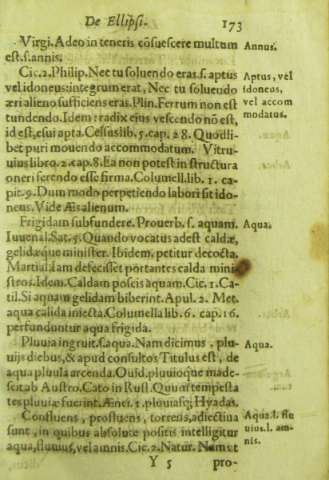 De Ellipsi. 173
Virgi. Adeo in teneris cõsuescere multum Annus.
est. s. annis.
Cic. 2. Philip. Nec tu soluendo eras. s. aptus Aptus, vel
vel idoneus: integrum erat, Nec tu soluẽdo idoneus,
æri alieno sufficiens eras. Plin. Ferrum non est vel accom
tundendo. Idem: radix eius vescendo nõ est, modatus.
id est, esui apta. Celsus lib. 5. cap. 28. Quodli-
bet puri mouendo accommodatum. Vitru-
uius libro. 2. cap. 8. Ea non potest in structura
oneri ferendo esse firma. Columell. lib. 1. ca-
pit. 9. Dum modo perpetiendo labori sit ido-
neus. Vide Æs alienum.
Frigidam subfundere. Prouerb. s. aquam. Aqua.
Iuuenal. Sat. 5. Quando vocatus adest caldæ,
gelidæque minister. Ibidem. petitur decocta.
Martial. Iam defecisset portantes calda mini-
stros. Idem. Caldam poscis aquam. Cic. 1. Ca-
til. Si aquam gelidam biberint. Apul. 2. Met.
aqua calida iniecta. Columella lib. 6. cap. 16.
perfunduntur aqua frigida.
Pluuia ingruit. s. aqua. Nam dicimus, plu- Aqua.
uijs diebus, & apud consultos Titulus est, de
aqua pluuia arcenda. Ouid. pluuioque made-
scit ab Austro. Cato in Rust. Quum tempesta
tes pluuiæ fuerint. Æneí. 1. pluuiasq; Hyadas.
Confluens, profluens, torrens, adiectiua Aqua. l. flu
sunt, in quibus absolute positis intelligitur uius. l. am-
aqua, fluuius, vel amnis. Cic. 2. Natur. Nam et nis.
Y 5 pro-